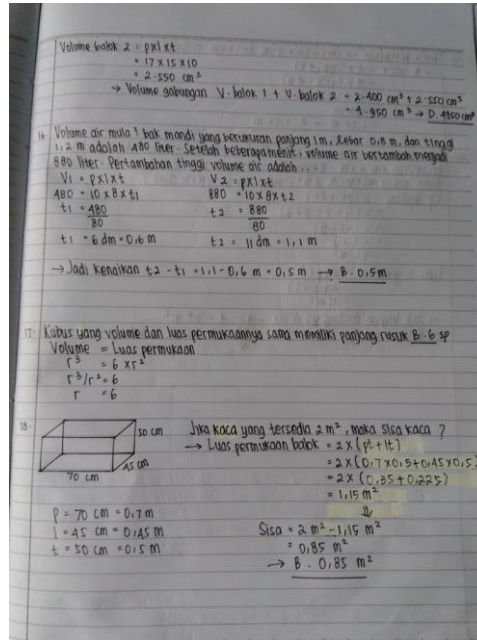 Volume balok 2 = pxlxt
= 17 x 15 x 10
= 2.550 cm³
→ Volume gabungan V. balok 1 + V. balok 2 = 2.400 cm³ + 2.550 cm³
= 4.950 cm³ → 0.4950 cm³
16. Volume air mula² bak mandi yang berukuran panjang 1m, lebar 0,8 m, dan tinggi
1,2 m adalah 480 liter. Setelah beberapa menit, volume air bertambah menjadi
880 liter. Pertambahan tinggi volume air adalah...
V1 = pxlxt V2 = pxlxt
480 = 10 x 8 x t1 880 = 10 x 8 x t2
t1 = 480/80 t2 = 880/80
t1 = 6 dm = 0,6 m t2 = 11 dm = 1,1 m
→ Jadi kenaikan t2 - t1 = 1,1 - 0,6 m = 0,5 m → B. 0,5m
17. Kubus yang volume dan luas permukaannya sama memiliki panjang rusuk B. 6 sp
Volume = Luas permukaan
r³ = 6 x r²
r³/r² = 6
r = 6
18. 50 cm
45 cm
70 cm
Jika kaca yang tersedia 2 m², maka sisa kaca ?
→ Luas permukaan balok = 2 x (pt + lt)
= 2 x (0,7 x 0,5 + 0,45 x 0,5)
= 2 x (0,35 + 0,225)
= 1,15 m²
⇓
p = 70 cm = 0,7 m
l = 45 cm = 0,45 m
t = 50 cm = 0,5 m
Sisa = 2 m² - 1,15 m²
= 0,85 m²
→ B. 0,85 m²